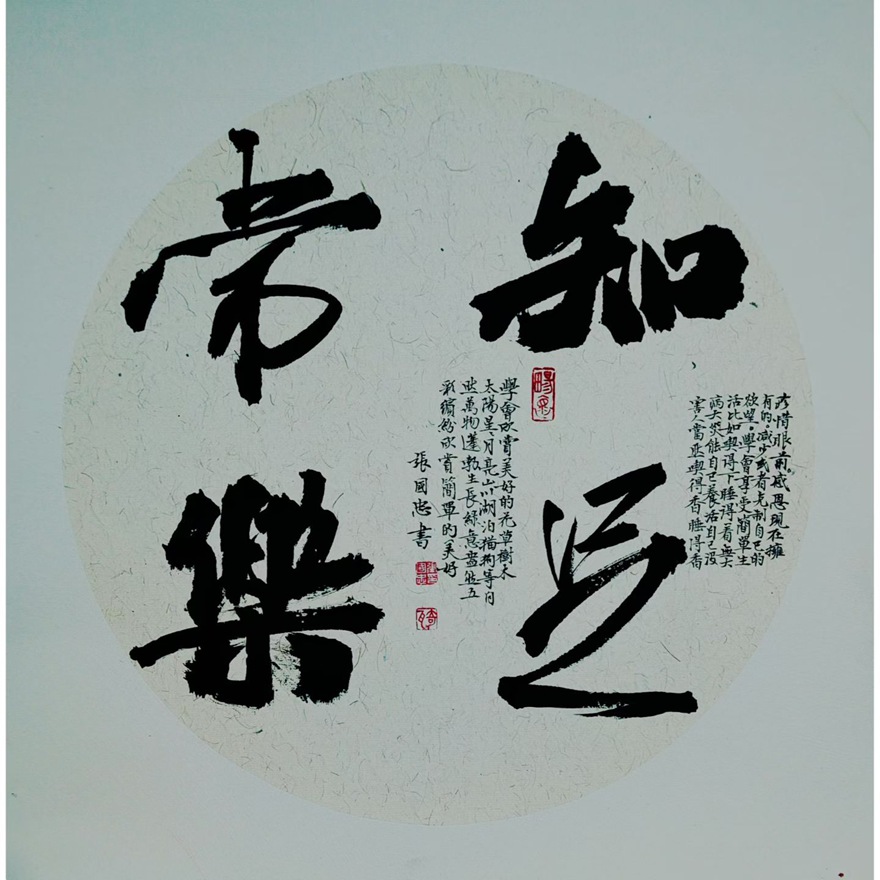 知足
常樂
珍惜眼前。感恩現在擁
有的，减少或者克制自己的
欲望。學會享受簡單生
活比如興得下睡得着無大
病大災能自己養活自己没
害人當興興得香睡得香
學會欣賞美好的花草樹木
太陽星月亮山川湖泊猫狗等自
然萬物蓬勃生長緑意盎然五
彩繽紛欣賞簡單的美好
張國忠書